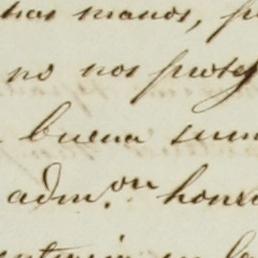 has manos, p
no nos proteg
buena sum
adm.on honra
en la